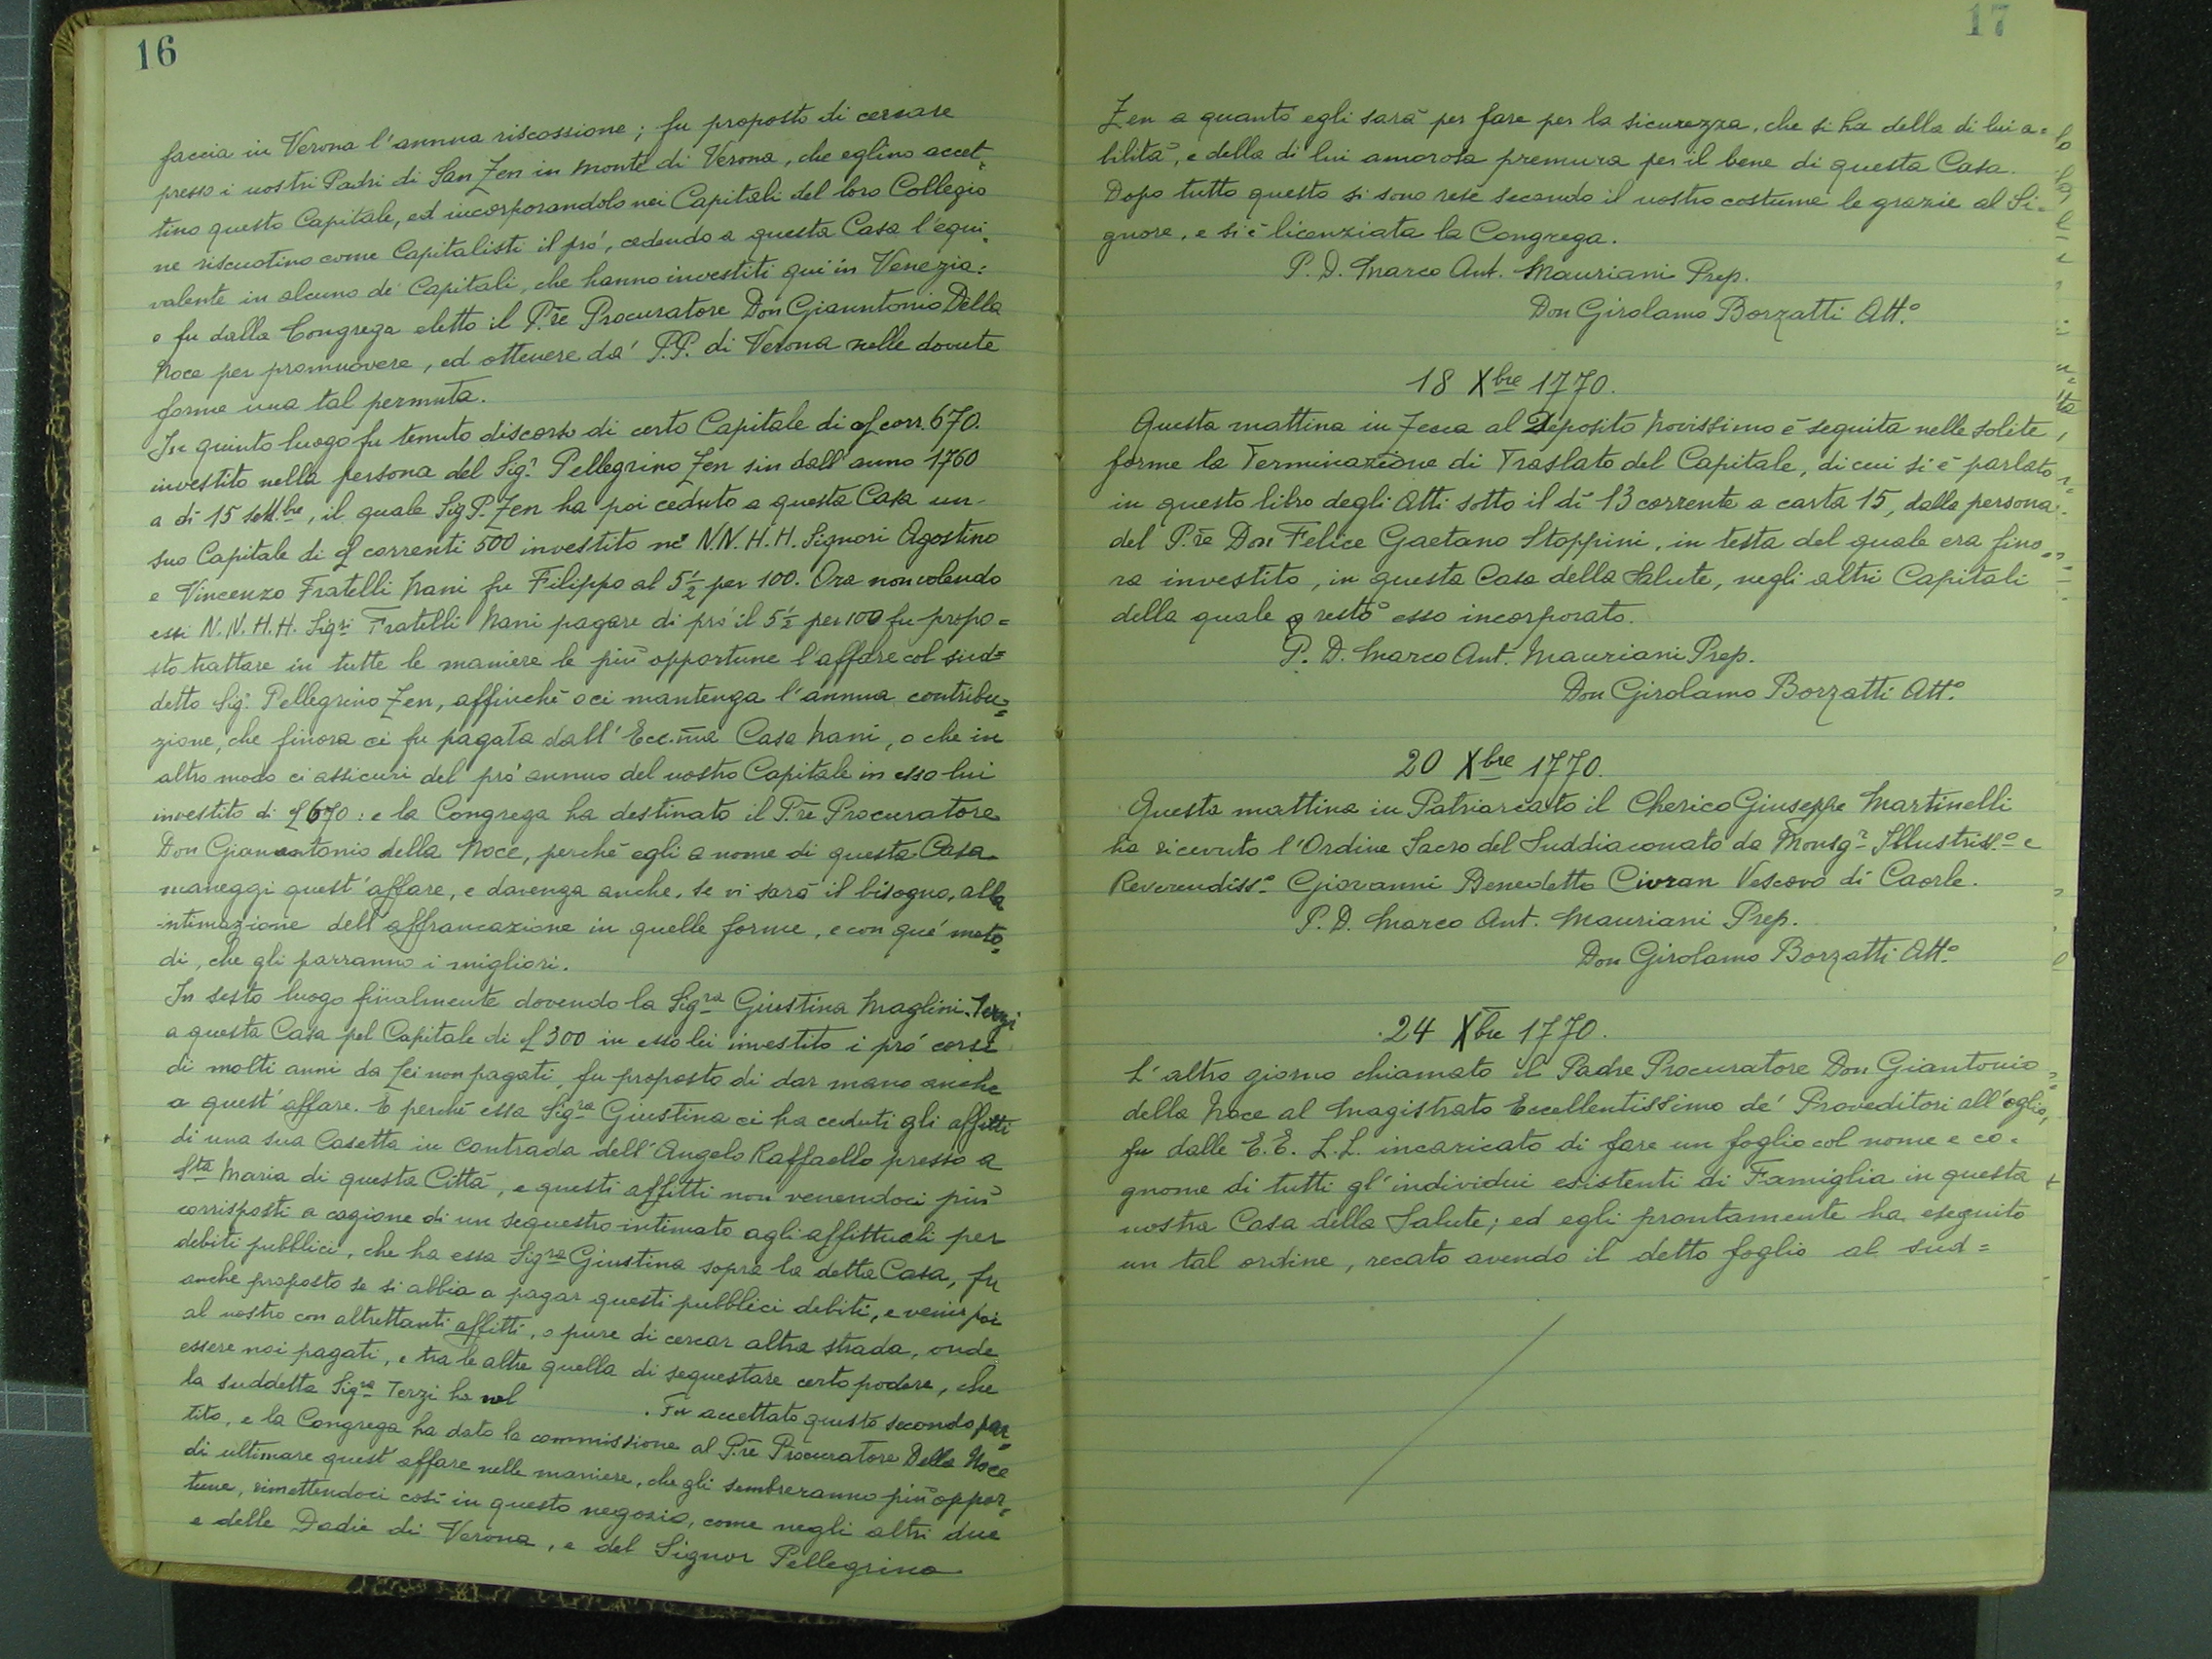 16
faccia in Verona l'annua riscossione; fu proposto di cercare
presso i nostri Padri di San Zen in monte di Verona, che eglino accet=
tino questo Capitale, ed incorporandolo nei Capitali del loro Collegio
ne riscuotino come Capitalisti il prò, cedendo a questa Casa l'equi=
valente in alcuno de' Capitali, che hanno investiti qui in Venezia:
e fu dalla Congrega eletto il P.re Procuratore Don Gianntonio Della
Noce per promuovere, ed ottenere da' P.P. di Verona nelle dovute
forme una tal permuta.
In quinto luogo fu tenuto discorso di certo Capitale di ₤ corr. 670.
investito nella persona del Sig.r Pellegrino Zen sin dall'anno 1760
a dì 15 Sett.bre, il quale Sig P. Zen ha poi ceduto a questa Casa un
suo Capitale di ₤ correnti 500 investito ne' N.N. H.H. Signori Agostino
e Vincenzo Fratelli Nani fu Filippo al 5 1/2 per 100. Ora non volendo
essi N.N. H.H. Sig.ri Fratelli Nani pagare di prò il 5 1/2 per 100 fu propo=
sto trattare in tutte le maniere le più opportune l'affare col sud=
detto Sig.r Pellegrino Zen, affinchè o ci mantenga l'annua contribu=
zione, che finora ci fu pagata dall'Ecc.ma Casa Nani, o che in
altro modo ci assicuri del prò annuo del nostro Capitale in esso lui
investito di ₤ 670: e la Congrega ha destinato il P.re Procuratore
Don Gianantonio della Noce, perchè egli a nome di questa Casa
maneggi quest'affare, e davenga anche, se vi sarà il bisogno, alla
intimazione dell'affrancazione in quelle forme, e con que' meto=
di, che gli parranno i migliori.
In sesto luogo finalmente dovendo la Sig.ra Giustina Maglini-Terzi
a questa Casa pel Capitale di ₤ 300 in esso lei investito i prò corsi
di molti anni da Lei non pagati, fu proposto di dar mano anche
a quest'affare. E perchè essa Sig.ra Giustina ci ha ceduti gli affitti
di una sua Casetta in contrada dell'Angelo Raffaello presso a
S.ta Maria di questa Città, e questi affitti non venendoci più
corrisposti a cagione di un sequestro intimato agli affittuali per
debiti pubblici, che ha essa Sig.ra Giustina sopra la detta Casa, fu
anche proposto se si abbia a pagar questi pubblici debiti, e venir poi
al nostro con altrettanti affitti, o pure di cercar altra strada, onde
essere noi pagati, e tra le altre quella di sequestare certo podere, che
la suddetta Sig.ra Terzi ha nel . Fu accettato questo secondo par=
tito, e la Congrega ha dato la commissione al P.re Procuratore Della Noce
di ultimare quest'affare nelle maniere, che gli sembreranno più oppor=
tune, rimettendoci così in questo negozio, come negli altri due
e delle Dadie di Verona, e del Signor Pellegrino
17
Zen a quanto egli sarà per fare per la sicurezza, che si ha della di lui a=
bilità, e della di lui amorosa premura per il bene di questa Casa.
Dopo tutto questo si sono rese secondo il nostro costume le grazie al Si=
gnore, e si è licenziata la Congrega.
P. D. Marco Ant. Mauriani Prep.
Don Girolamo Borzatti Att.o
18 Xbre 1770.
Questa mattina in Zecca al Deposito Novissimo è seguita nelle solite
forme la Terminazione di Traslato del Capitale, di cui si è parlato
in questo libro degli Atti sotto il dì 13 corrente a carta 15, dalla persona
del P.re Don Felice Gaetano Stoppini, in testa del quale era fino=
ra investito, in questa Casa della Salute, negli altri Capitali
della quale restò esso incorporato.
P. D. Marco Ant. Mauriani Prep.
Don Girolamo Borzatti Att.o
20 Xbre 1770.
Questa mattina in Patriarcato il Cherico Giuseppe Martinelli
ha ricevuto l'Ordine Sacro del Suddiaconato da Monsg.r Illustriss.o e
Reverendiss.o Giovanni Benedetto Civran Vescovo di Caorle.
P. D. Marco Ant. Mauriani Prep.
Don Girolamo Borzatti Att.o
24 Xbre 1770.
L'altro giorno chiamato il Padre Procuratore Don Giantonio
della Noce al Magistrato Eccellentissimo de' Proveditori all'oglio,
fu dalle E.E. L.L. incaricato di fare un foglio col nome e co=
gnome di tutti gl'individui esistenti di Famiglia in questa
nostra Casa della Salute; ed egli prontamente ha eseguito
un tal ordine, recato avendo il detto foglio al sud=